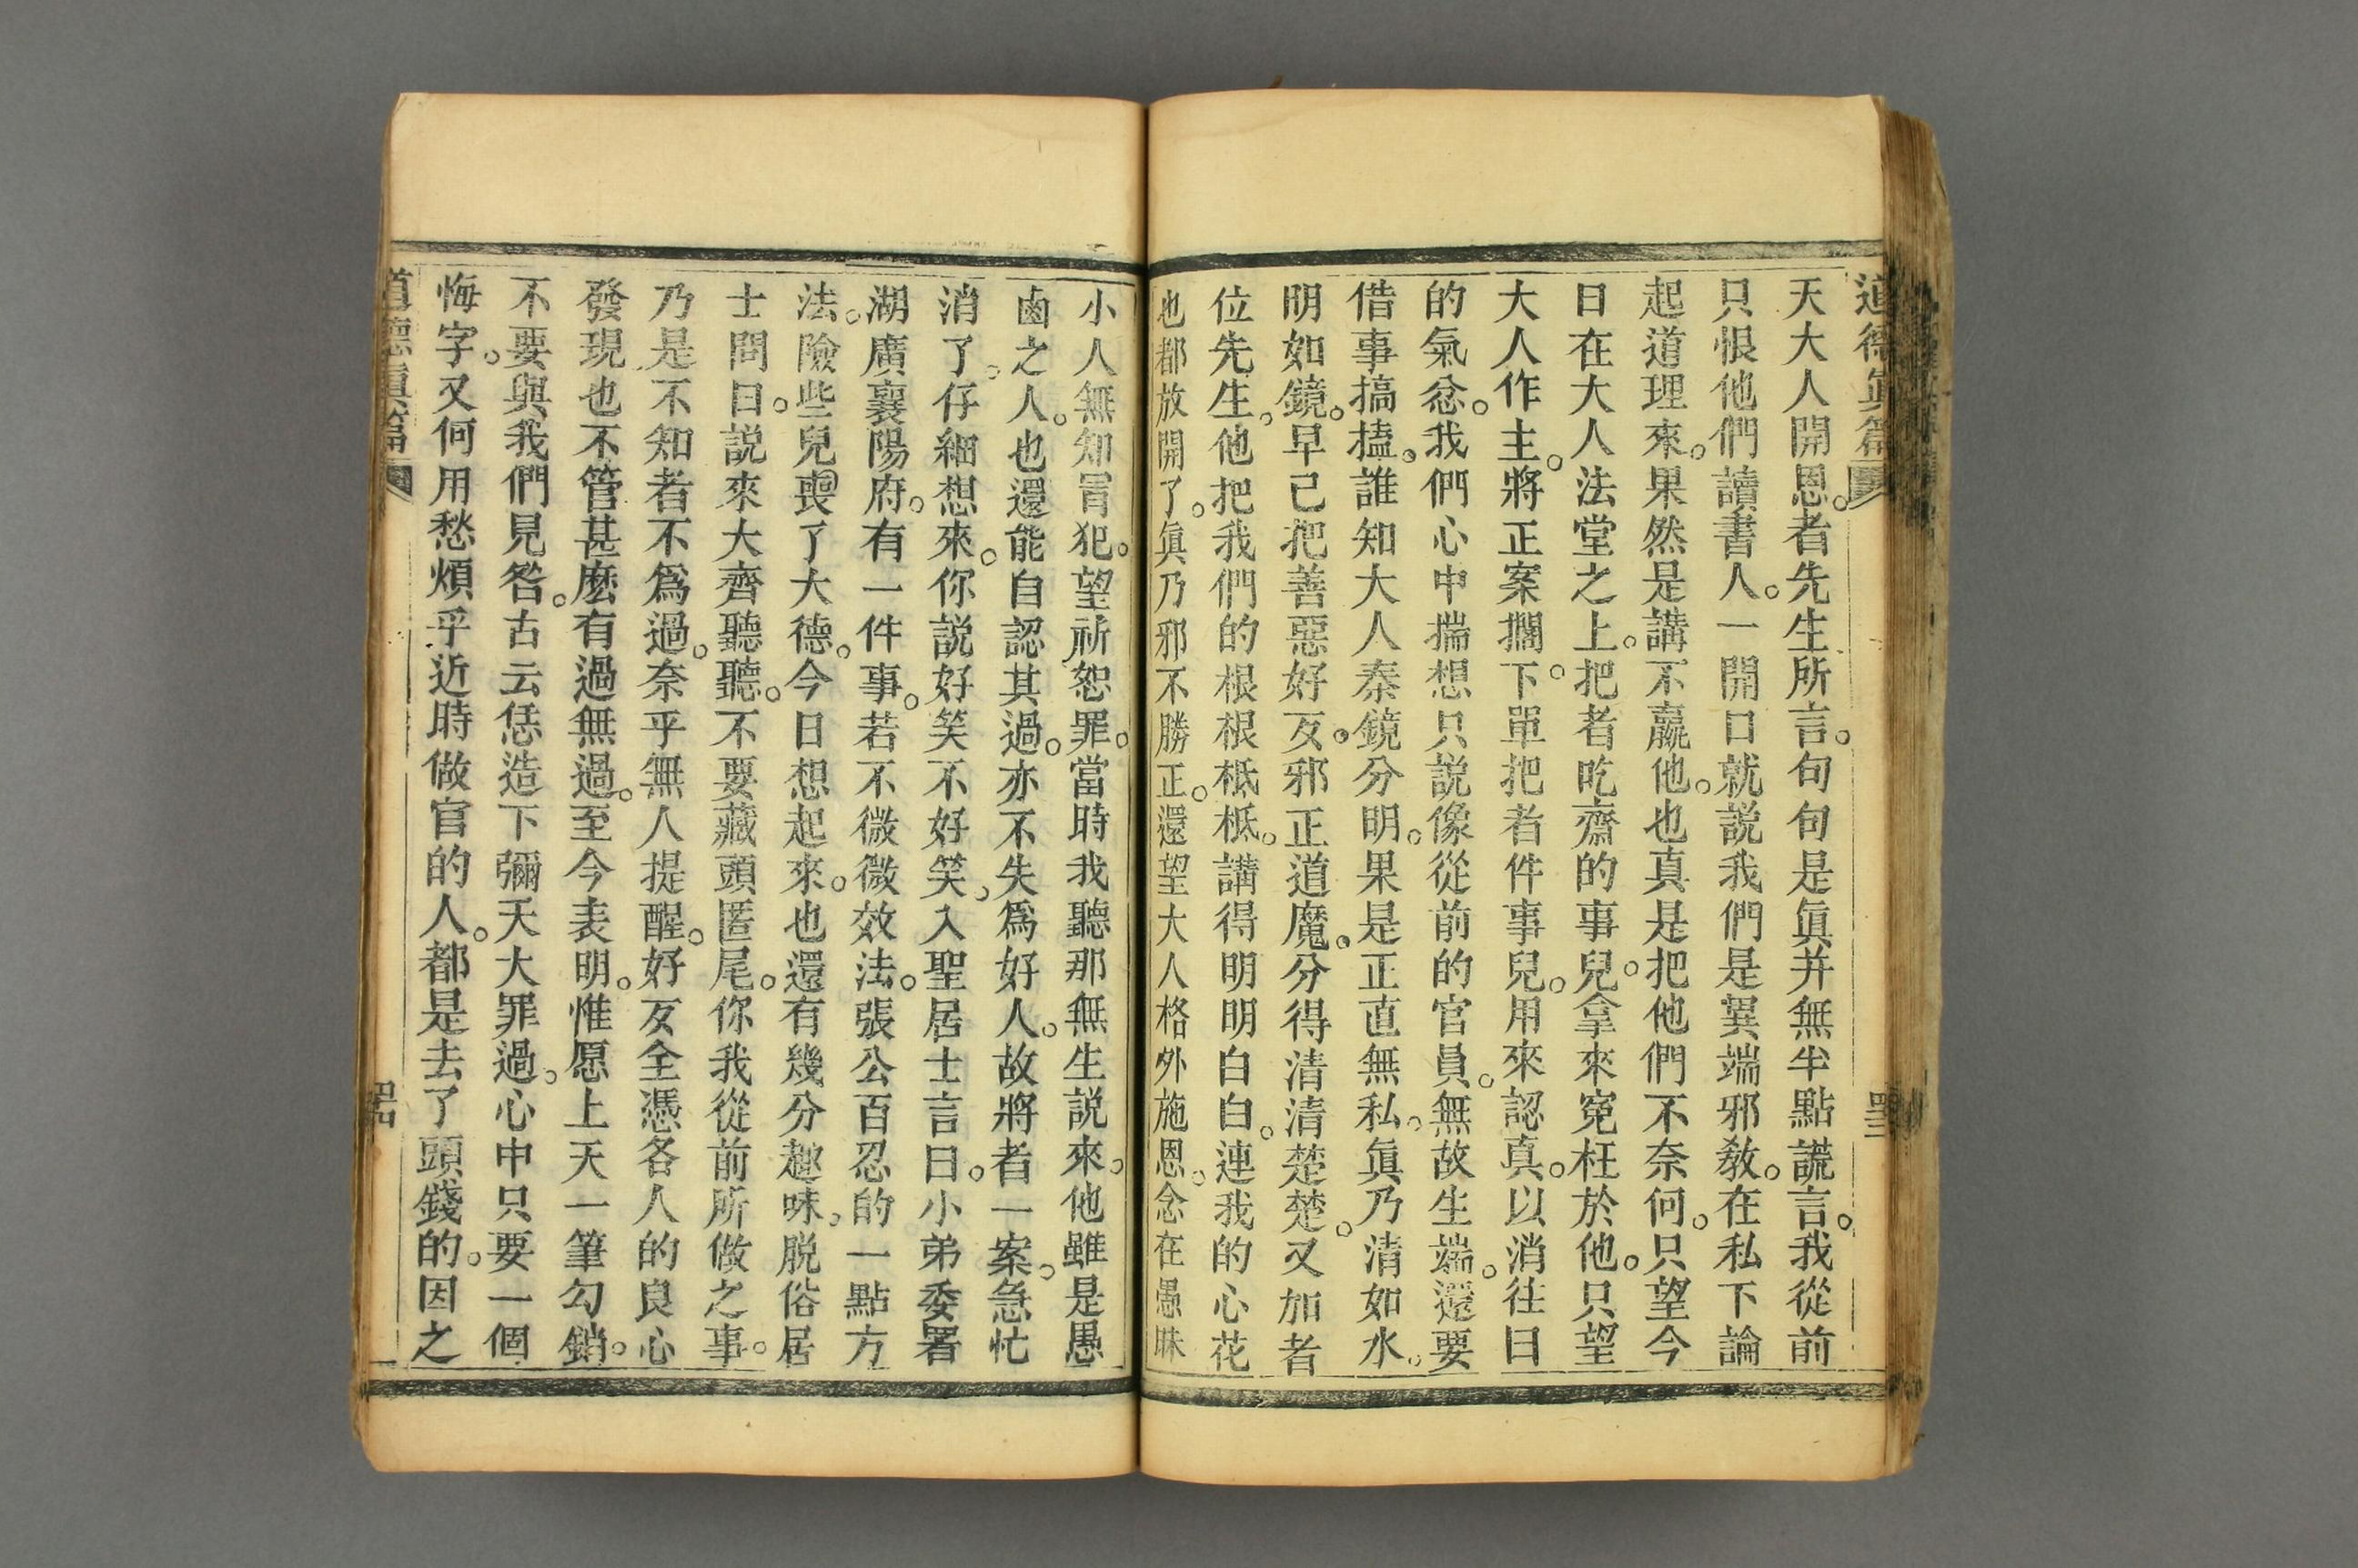 道德眞篇
四三
天大人開恩。者先生所言。句句是眞并無半點謊言。我從前
只恨他們讀書人。一開口就説我們是異端邪教。在私下論
起道理來。果然是講不贏他。也真是把他們不奈何。只望今
日在大人法堂之上。把者吃齋的事兒。拿來寃枉於他。只望
大人作主。將正案擱下。單把者件事兒。用來認真。以消往日
的氣忿。我們心中揣想只説像從前的官員。無故生端。還要
借事搞搕。誰知大人秦鏡分明。果是正直無私。眞乃清如水。
明如鏡。早已把善惡好歹。邪正道魔。分得清清楚楚。又加者
位先生。他把我們的根根柢柢。講得明明白白。連我的心花
也都放開了。眞乃邪不勝正。還望大人格外施恩。念在愚昧
小人無知冐犯。望祈恕罪。當時我聽那無生説來。他雖是愚
鹵之人。也還能自認其過。亦不失爲好人。故將者一案。急忙
消了。仔細想來。你説好笑不好笑。入聖居士言曰。小弟委署
湖廣襄陽府。有一件事。若不微微效法。張公百忍的一點方
法。險些兒喪了大德。今日想起來。也還有幾分趣味。脱俗居
士問曰。説來大齊聽聽。不要藏頭匿尾。你我從前所做之事。
乃是不知者不爲過。奈乎無人提醒。好歹全憑各人的良心
發現也不管甚麽有過無過。至今表明。惟愿上天一筆勾銷。
不要與我們見咎。古云恁造下彌天大罪過。心中只要一個
悔字。又何用愁煩乎近時做官的人。都是去了頭錢的。因之
道德眞篇
四四